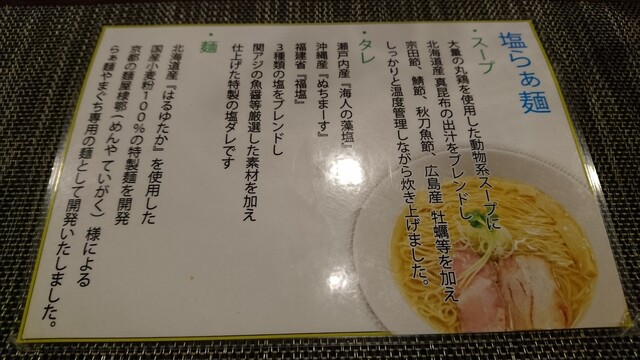 塩らぁ麺
・スープ
大量の丸鶏を使用した動物系スープに
北海道産 真昆布の出汁をブレンドし
宗田節、鯖節、秋刀魚節、広島産 牡蠣等を加え
しっかりと温度管理しながら炊き上げました。
・タレ
瀬戸内産『海人の藻塩』
沖縄産『ぬちまーす』
福建省『福塩』
3種類の塩をブレンドし
関アジの魚醤等厳選した素材を加え
仕上げた特製の塩ダレです
・麺
北海道産『はるゆたか』を使用した
国産小麦粉100%の特製麺を開発
京都の麺屋棣鄂(めんや ていがく)様による
らぁ麺やまぐち専用の麺として開発いたしました。